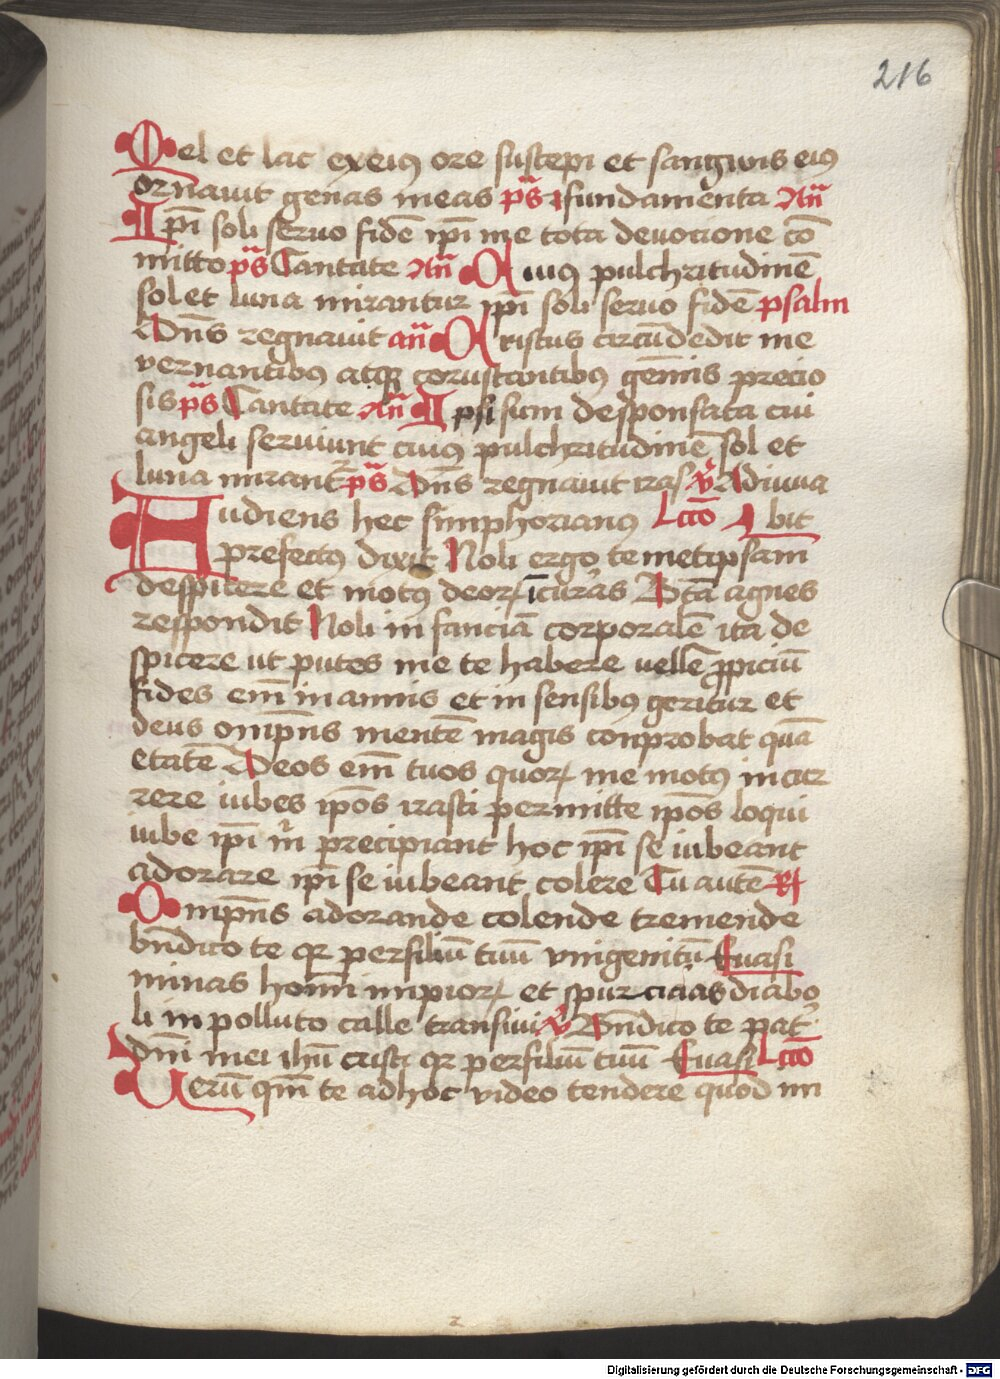 216
Mel et lac ex eiꝰ ore suscepi et sangwis eiꝰ
ornauit genas meas p̄s fundamenta Añ
Ipī soli seruo fidē ipī me tota deuocione cō
mitto p̄s Cantate Añ Cuiꝰ pulchritudinē
sol et luna mirantur ipī soli seruo fidē psalm
Dn̄s regnauit añ Cristus circūdedit me
vernantibꝰ atqꝫ coruscantibꝰ gem̄is precio
sis p̄s Cantate Añ Ipsi sum desponsata cui
angeli seruiunt cuiꝰ pulchritudinē sol et
luna mirant᷑ p̄s Dn̄s regnauit iras v̄ Adiuua
Audiens hec simphorianꝰ Lcīo I bīt
prefectꝰ dixit Noli ergo temetipsam
despicere et motꝰ deoꝝ īcur̾as Btā agnes
respondit Noli in fanciā corporalē ita de
spicere ut putes me te habere uelle ꝓpiciū
fides em̄ in annis et in sensibꝰ geritur et
deus omp̄ns mentē magis conprobat quā
etatē Deos em̄ tuos quoꝝ me motꝰ incur
rere iubes ip̄os irasci permitte ip̄os loqui
iube ipī m̄ precipiant hoc ipī se iubeant
adorare ipī se iubeant colere Tu autē R
Omp̄ns adorande colende tremende
bn̄dico te qꝛ per filiū tuū vnigenitū Euasi
minas hom̄ impioꝝ et spurcicias diabo
li in polluto calle transiui v̄ Bn̄dico te pat̾
dn̄i mei ihū cristi qꝛ per filiū tuū Euasi Lcīo
Verū qm̄ te ad hoc video tendere quod nn
Digitalisierung gefördert durch die Deutsche Forschungsgemeinschaft - DFG